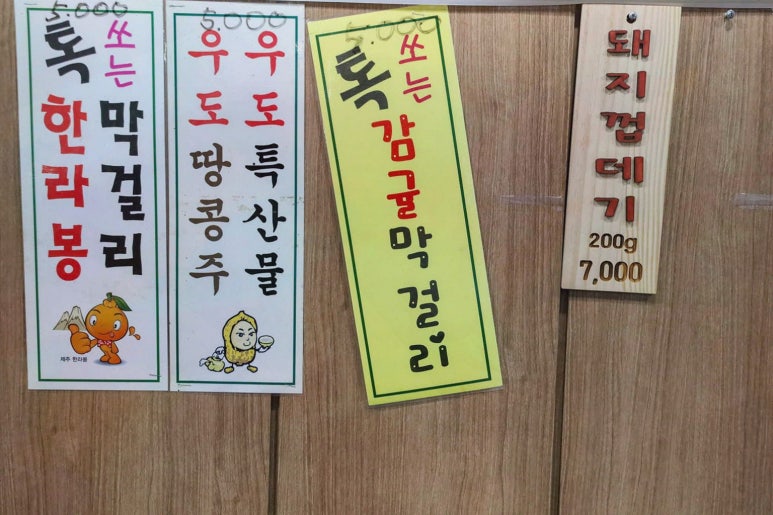 5.000
톡 쏘는
한라봉
막걸리
제주 한라봉
5.000
우도 특산물
우도 땅콩주
5.000
톡 쏘는
감귤
막걸리
돼지껍데기
200g
7,000